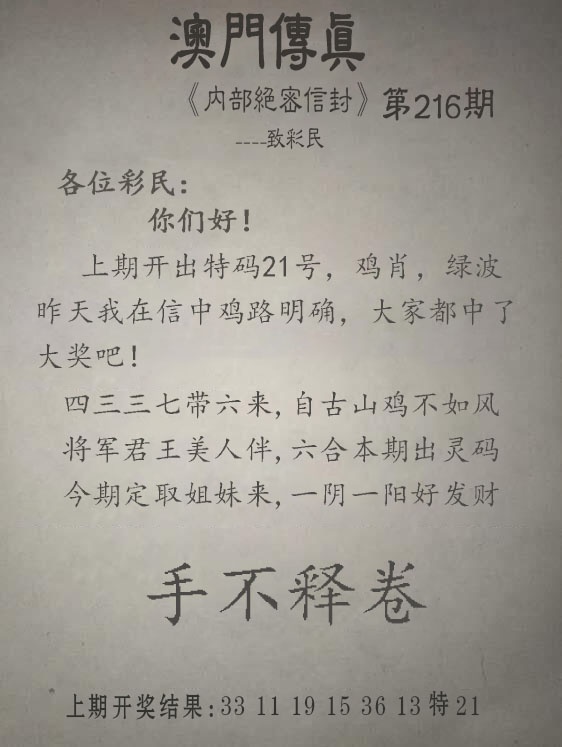 澳門傳眞
《内部絕密信封》第216期
----致彩民
各位彩民：
你们好！
上期开出特码21号，鸡肖，绿波
昨天我在信中鸡路明确，大家都中了
大奖吧！
四三三七带六来,自古山鸡不如风
将军君王美人伴,六合本期出灵码
今期定取姐妹来,一阴一阳好发财
手不释卷
上期开奖结果:33 11 19 15 36 13 特 21